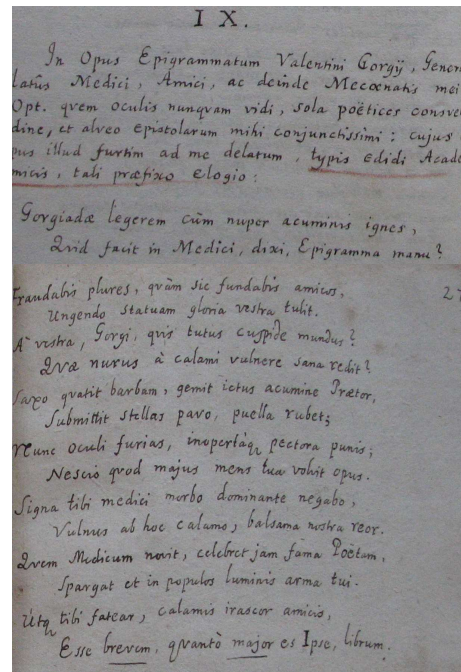 IX.
In Opus Epigrammatum Valentini Gorgij, Gene
latus Medici, Amici, ac deinde Mecœnatis mei
Opt. qvem oculis nunqvam vidi, sola poëtices consve
dine, et alveo epistolarum mihi conjunctissimi; cujus
pus illud furtim ad me delatum, typis edidi Acade
micis, tali præfixo elogio:
Gorgiadæ legerem cùm nuper acuminis ignes,
Qvid facit in Medici, dixi, Epigramma manu?
Fraudabis plures, qvàm sic fundabis amicos,
27
Ungendo statuam gloria vestra tulit.
A vestra, Gorgi, qvis tutus cuspide mundus?
Qvæ nurus à calami vulnere sana redit?
Saxo qvatit barbam, gemit ictus acumine Prætor,
Submittit stellas pavo, puella rubet;
Nunc oculi furias, inopertaq pectora punis;
Nescio qvod majus mens tua volvit opus.
Signa tibi medici morbo dominante negabo,
Vulnus ab hoc calamo, balsama nostra reor.
Qvem Medicum novit, celebret jam fama Poëtam,
Spargat et in populos luminis arma tui.
Utq tibi fatear, calamis irascor amicis,
Esse brevem, qvantò major es Ipse, librum.